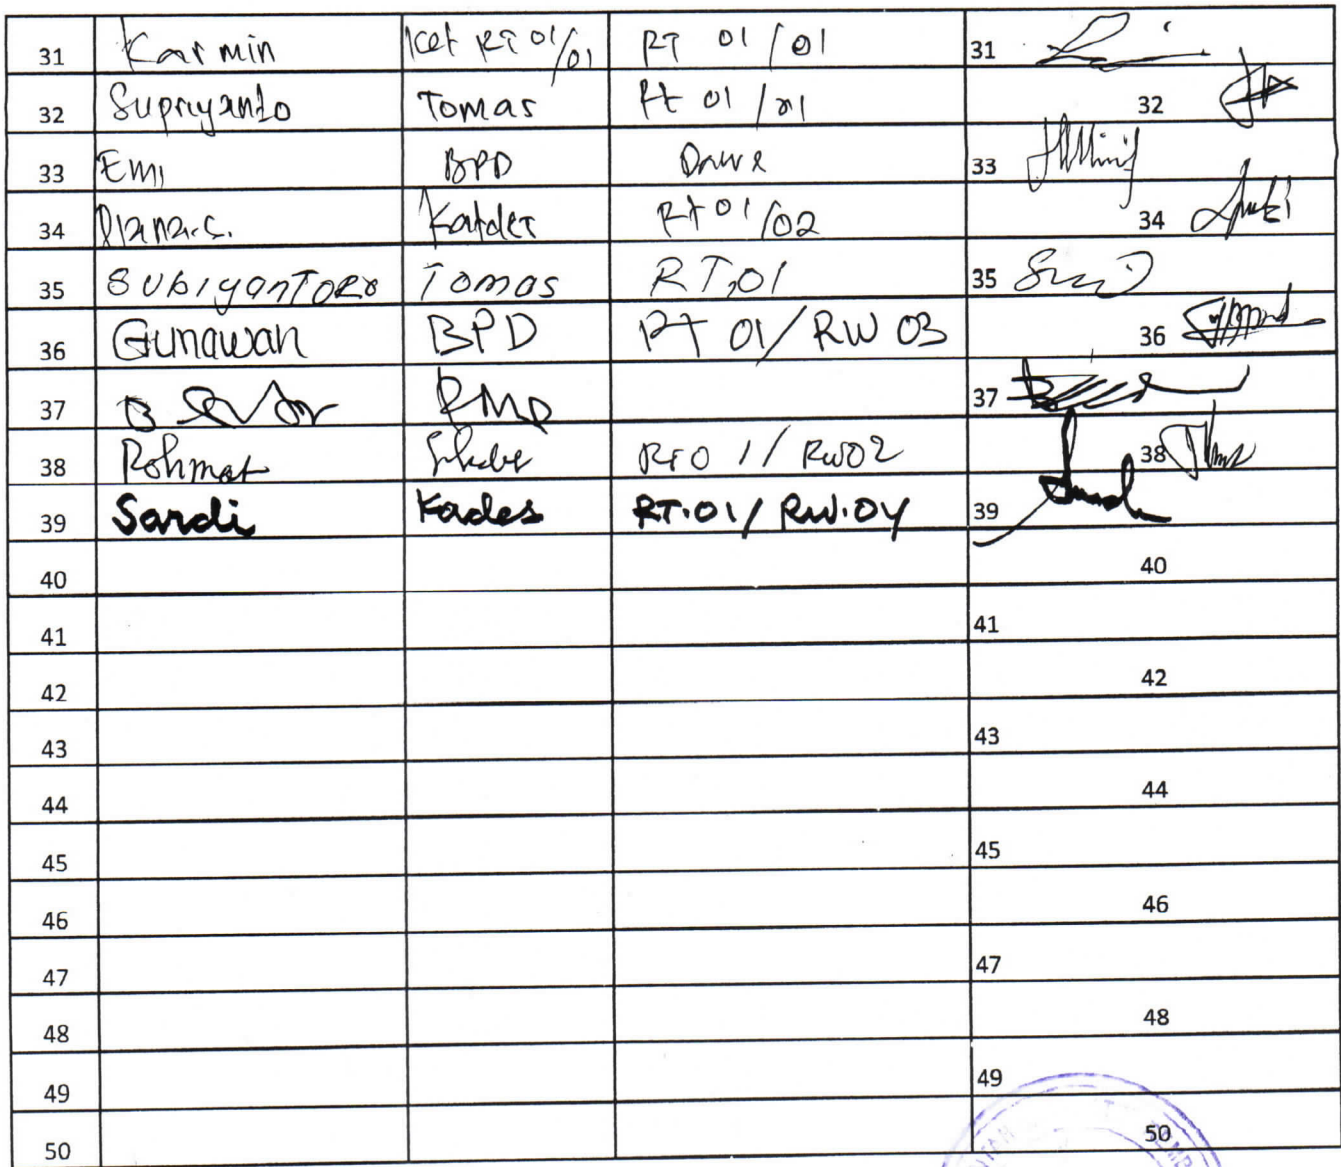 31 Karmin Ket RT 01/01 RT 01/01 31
32 Supriyanto Tomas Rt 01/01 32
33 Emi BPD Dawe 33
34 Diana.S. Kader Rt 01/02 34
35 SUBIyanTORO Tomas RT,01 35
36 Gunawan BPD RT 01/RW 03 36
37 37
38 Rohmat RT01/RW02 38
39 Sardi Kades RT.01/RW.04 39
40 40
41 41
42 42
43 43
44 44
45 45
46 46
47 47
48 48
49 49
50 50